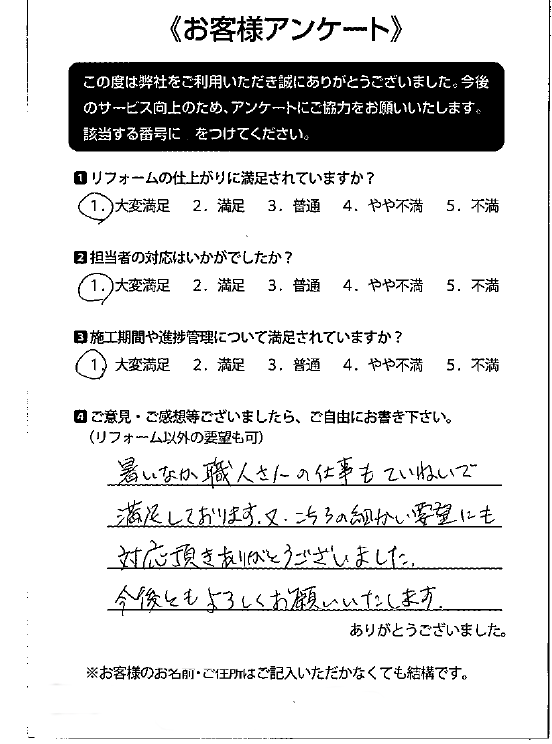 《お客様アンケート》
この度は弊社をご利用いただき誠にありがとうございました。今後
のサービス向上のため、アンケートにご協力をお願いいたします。
該当する番号に をつけてください。
1 リフォームの仕上がりに満足されていますか？
1. 大変満足 2. 満足 3. 普通 4. やや不満 5. 不満
2 担当者の対応はいかがでしたか？
1. 大変満足 2. 満足 3. 普通 4. やや不満 5. 不満
3 施工期間や進捗管理について満足されていますか？
1. 大変満足 2. 満足 3. 普通 4. やや不満 5. 不満
4 ご意見・ご感想等ございましたら、ご自由にお書き下さい。
（リフォーム以外の要望も可）
暑いなか職人さんの仕事もていねいで
満足しております。又、こちらの細かい要望にも
対応頂きありがとうございました。
今後ともよろしくお願いいたします。
ありがとうございました。
※お客様のお名前・ご住所はご記入いただかなくても結構です。